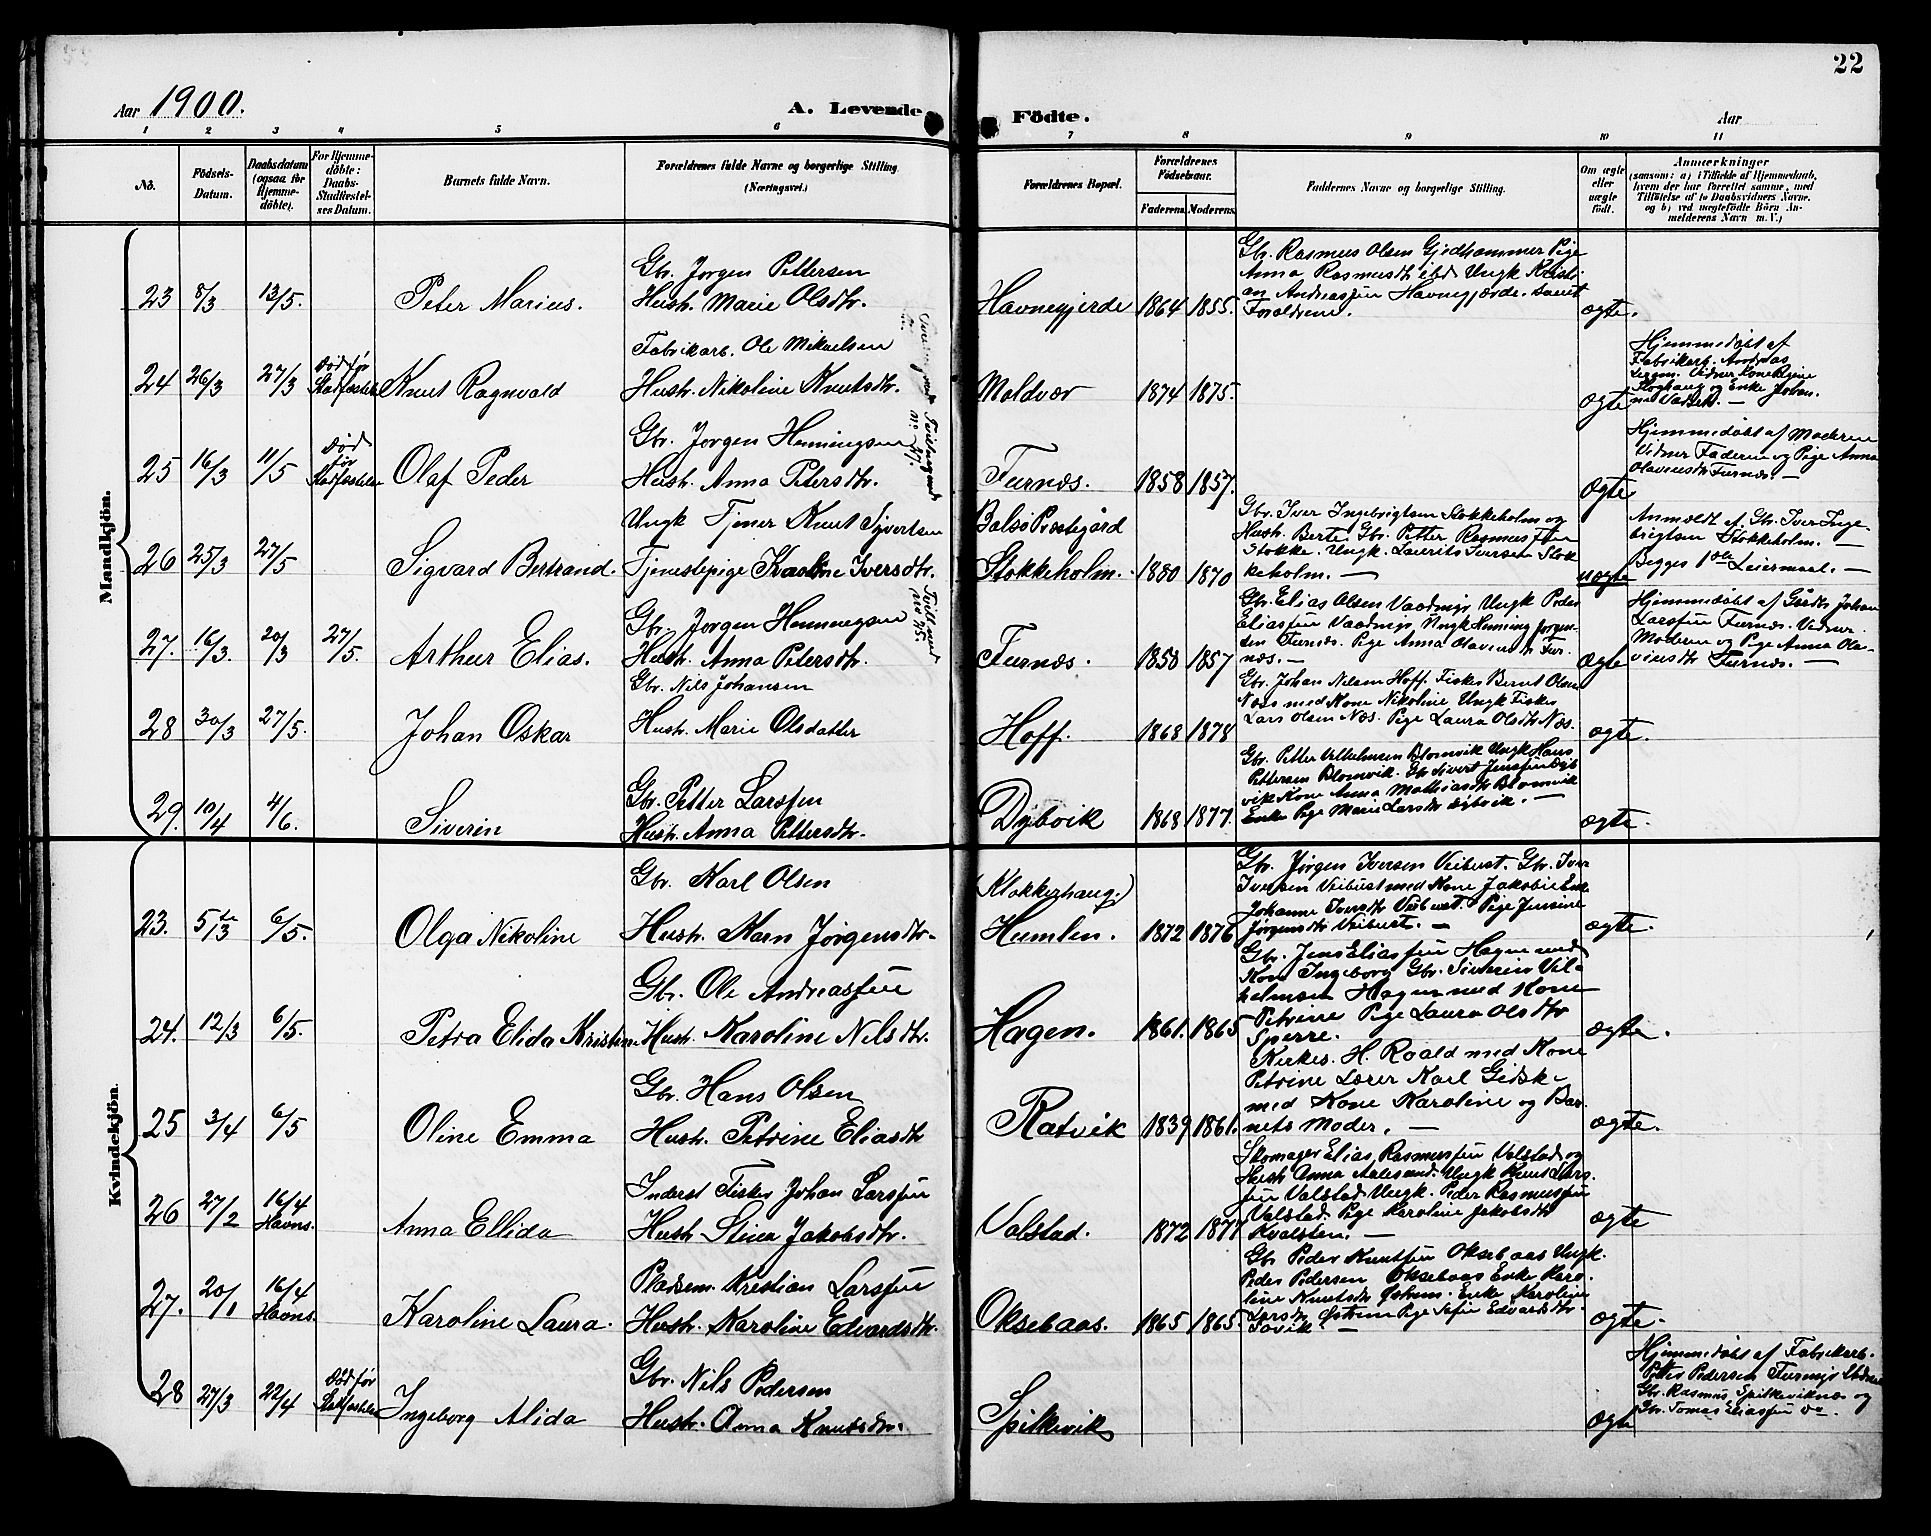 22
Aar 1900.
A. Levende Födte.
Aar
1 2 3 4 5 6 7 8 9 10 11
No.
Födsels-
Datum.
Daabsdatum
(ogsaa for
Hjemme-
döbte).
For Hjemme-
döbte:
Daabs-
Stadfæstel-
ses Datum.
Barnets fulde Navn.
Forældrenes fulde Navne og borgerlige Stilling
(Næringsvei.)
Forældrenes Bopæl.
Forældrenes
Födselsaar.
Faderens Moderens
Faddernes Navne og borgerlige Stilling.
Om ægte
eller
uægte
født.
Anmærkninger
(saasom: a) i Tilfælde af Hjemmedaab,
hvem der har forrettet samme, med
Tilføielse af to Daabsvidners Navne,
og b) ved uægtefødte Börn An-
melderens Navn m. V.)
Mandkjön.
23 8/3 13/5. Peter Marius.
Gbr. Jørgen Pettersen
Hustr. Marie Olsdtr.
Havnegjerde 1864 1855.
Gbr. Rasmus Olsen Gjedhammer Pige
Anna Rasmusdtr ibd Ungk Kristi-
an Andreassen Havnegjærde. samt
Forældrene.
ægte.
24 26/3 27/3 Død før Stadfæstelse Knut Ragnvald
Fabrikarb. Ole Mikaelsen
Hustr. Nikoline Knutsdtr.
Moldvær 1874 1875.
ægte
Hjemmedøbt af
Fabrikarb. Andreas
Vidner Kone
og Enke Johan-
25 16/3 11/5 Død før Stadfæstelse Olaf Peder
Gbr. Jørgen Henningsen
Hustr. Anna Petersdtr.
Tvilling med No 27.
Furnæs. 1858 1857.
ægte
Hjemmedøbt af Moderen
Vidner Faderen og Pige Anna
Olavensdtr Furnæs. —
26 25/3 27/5 Sigvard Bertrand.
Ungk Tjener Knut Syvertsen
Tjenestepige Karoline Iversdtr.
Balsø Præstegård
Stokkeholm. 1880 1870
Gbr. Iver Ingebrigtsen Stokkeholm og
Hustr. Berte. Gbr. Petter Rasmussen
Stokke. Ungk. Laurits Iversen Stok-
keholm. —
uægte
Anmeldt af Gbr. Iver Inge-
brigtsen Stokkeholm. —
Begges 1ste Leiermaal. —
27. 16/3. 20/3 27/5. Arthur Elias.
Gbr. Jorgen Henningsen
Hustr. Anna Petersdtr.
Tvill. med No 25.
Furnæs. 1858 1857
Gbr. Elias Olsen Ungk Peder
Eliassen Ungk Henning Jørgen-
sen Furnæs. Pige Anna Olavensdtr Fur-
næs. —
ægte
Hjemmedøbt af Gårdbr Johan
Larssen Furnæs. Vidner.
Moderen og Pige Anna Ola-
vensdtr Furnæs. —
28 30/3 27/5. Johan Oskar
Gbr. Nils Johansen
Hustr. Marie Olsdatter
Hoff. 1868 1878
Gbr. Johan Nilsen Hoff. Fisker Bernt Olsen
Næs med Kone Nikoline Ungk Fisker
Lars Olsen Næs. Pige Laura Olsdtr Næs.
ægte.
29. 10/4 4/6. Siverin
Gbr. Petter Larssen
Hustr. Anna Pettersdtr.
Dybvik 1868 1877.
Gbr. Petter Vilhelmsen Blomvik Ungk Hans
Pettersen Blomvik. Gbr Sivert Jenssen Dyb-
vik Kone Anna Mathiasdtr Blomvik
Enke Pige Marie Larsdtr Dybvik. —
ægte.
Kvindekjön.
23. 5te/3 6/5. Olga Nikoline
Gbr. Karl Olsen
Hustr. Karn Jørgensdtr.
(Klokkerhaug.)
Humlen. 1872 1876
Gbr. Jørgen Iversen Veibust. Gbr. Iver
Iversen Veibust med Kone Jakobie Enke
Johanne Iversdtr Veibust. Pige Jensine
Jørgensdtr Veibust. —
ægte.
24. 12/3 6/5. Petra Elida Kristine
Gbr. Ole Andreassen
Hustr. Karoline Nilsdtr.
Hagen. 1861. 1865
Gbr. Jens Eliassen Hagen med
Kone Ingeborg Gbr. Siverin Vil-
helmsen Hagen med Kone
Petrine Pige Laura Olsdtr
Sperre.
ægte.
25 3/4 6/5 Oline Emma
Gbr. Hans Olsen
Hustr. Petrine Eliasdtr
Ratvik 1839 1861.
Kirkes. H. Roald med Kone
Petrine Lærer Karl Gidske
med Kone Karoline og Bar-
nets Moder. —
ægte.
26 27/2 16/4 Havns. Anna Ellida
Inderst Fisker Johan Larssen
Hustr. Stina Jakobsdtr.
Valstad. 1872 1877
Skomager Elias Rasmussen Valstad og
Hustr Anna Aalesund. Ungk Knut Lars-
sen Valstad. Ungk. Peder Rasmussen
Valstad. Pige Karoline Jakobsdtr
Kvalsten. —
ægte
27. 20/1 16/4 Havns. Karoline Laura.
Pladsem. Kristian Larssen
Hustr. Karoline Edvardsdtr.
Oksebaas. 1865 1865.
Gbr Peder Knutsen Oksebaas Ungk.
Peder Pedersen Oksebaas Enke Karo-
line Knutsdtr Østrem. Enke Karoline
Larsdtr Østrem Pige Sefine Edvardsdtr.
ægte.
28 27/3 22/4 Død før Stadfæstelse Ingeborg Alida
Gbr. Nils Pedersen
Hustr. Anna Knutsdtr.
Spilkevik
ægte
Hjemmedøbt af Fabrikarb.
Petter Pedersen
Gbr. Rasmus Spilkeviknæs og
Gbr. Tomas Eliassen do.